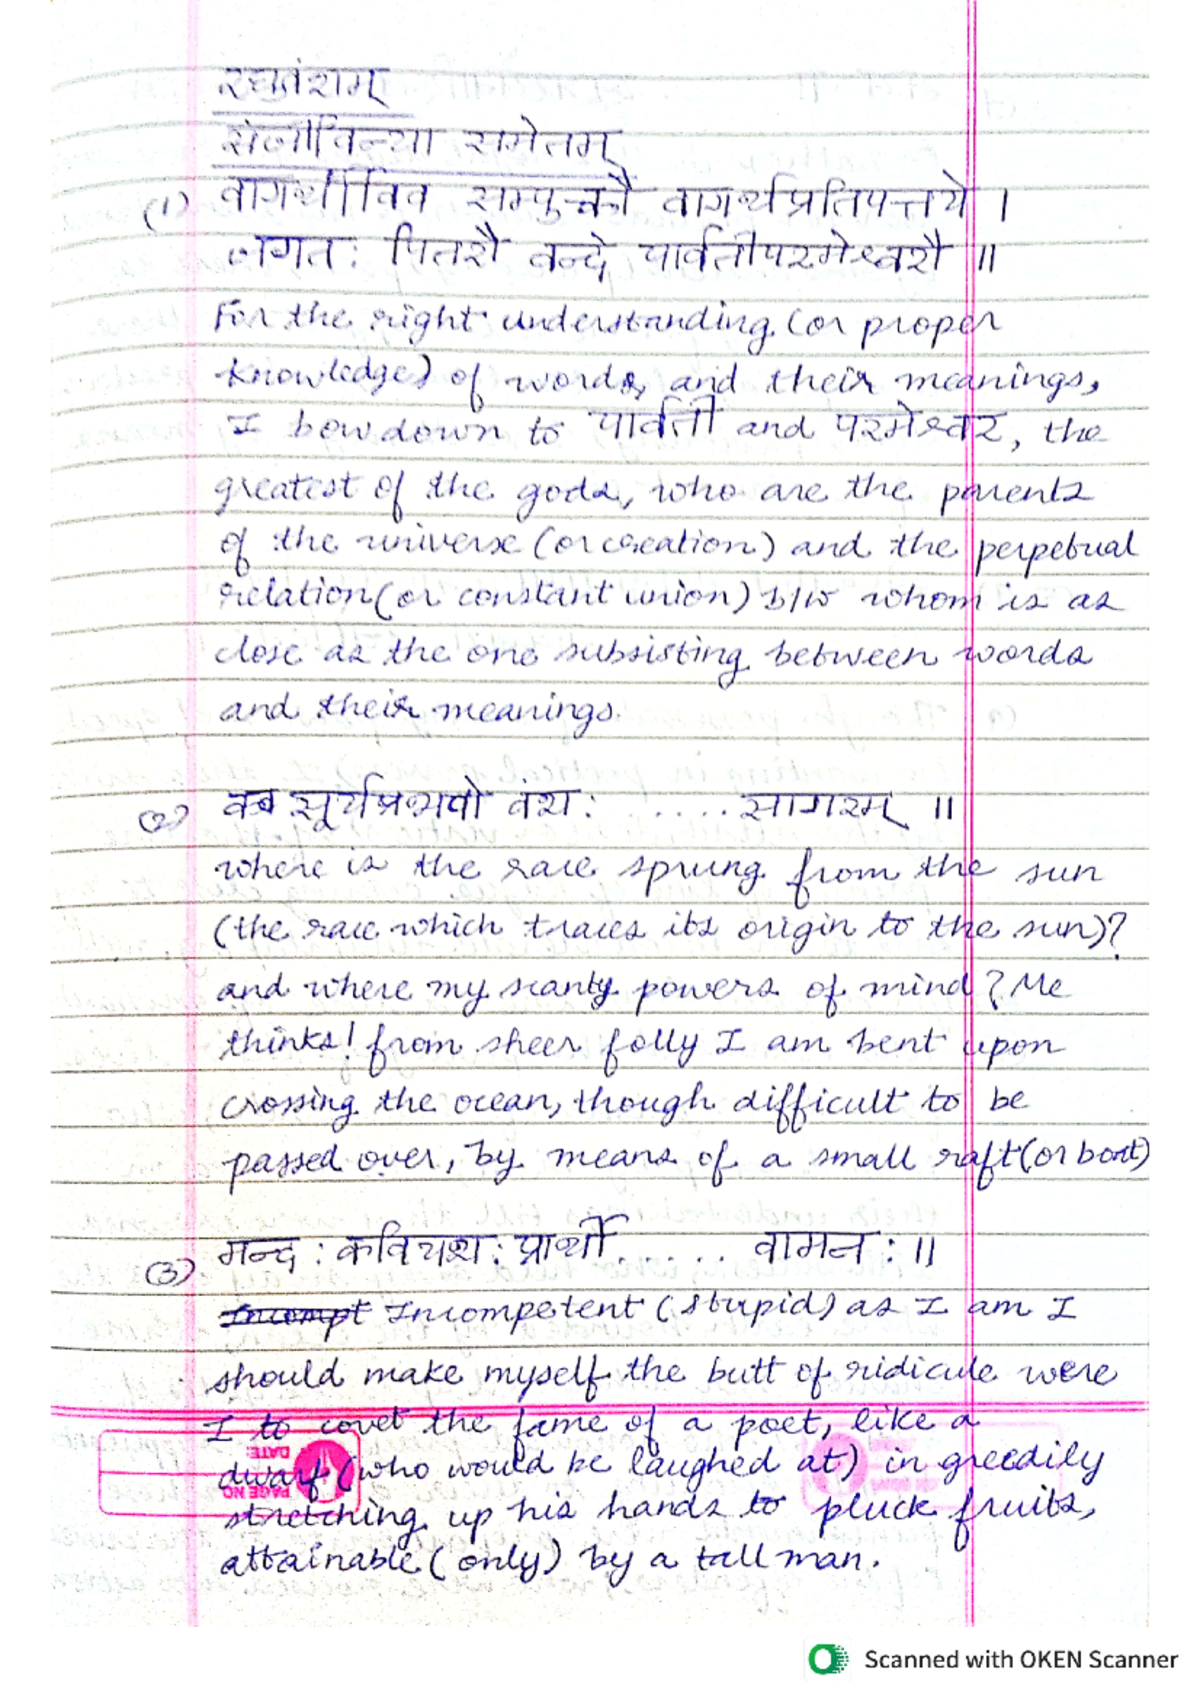 रघुवंशम्
संजीविन्या समेतम्
(1) वागर्थाविव सम्पृक्तौ वागर्थप्रतिपत्तये ।
जगतः पितरौ वन्दे पार्वतीपरमेश्वरौ ॥
For the right understanding (or proper
knowledge) of words, and their meanings,
I bow down to पार्वती and परमेश्वर, the
greatest of the gods, who are the parents
of the universe (or creation) and the perpetual
relation (or constant union) b/w whom is as
close as the one subsisting between words
and their meanings.
(2) क्व सूर्यप्रभवो वंशः ..... सागरम् ॥
where is the race sprung from the sun
(the race which traces its origin to the sun)?
and where my scanty powers of mind? Me
thinks! from sheer folly I am bent upon
crossing the ocean, though difficult to be
passed over, by means of a small raft (or boat)
(3) मन्दः कवियशः प्रार्थी ...... वामनः ॥
Incompt Incompetent (stupid) as I am I
should make myself the butt of ridicule were
I to covet the fame of a poet, like a
DATE:
dwarf (who would be laughed at) in greedily
PAGE NO
stretching up his hands to pluck fruits,
attainable (only) by a tall man.
Scanned with OKEN Scanner